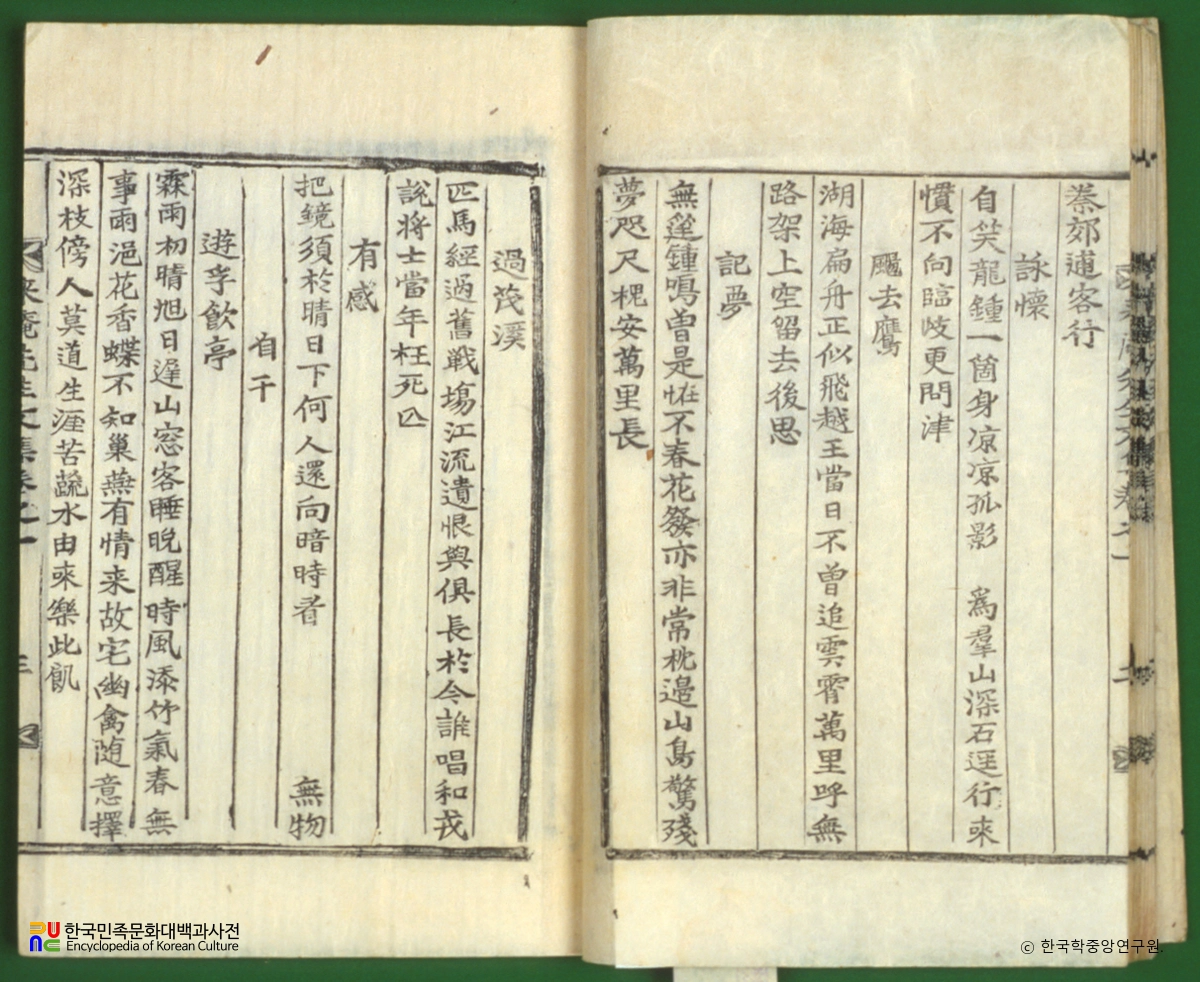 秦郊逋客行
詠懷
自笑龍鍾一箇身凉凉孤影 爲羣山深石逕行來
慣不向臨歧更問津
颺去鷹
湖海扁舟正似飛越王當日不曾追雲霄萬里呼無
路架上空留去後思
記夢
無筳鍾鳴曽是恠不春花發亦非常枕邊山鳥驚殘
夢咫尺槐安萬里長
二
過茂溪
匹馬經過舊戰場江流遺恨與俱長於今誰唱和戎
說將士當年枉死亾
有感
把鏡須於晴日下何人還向暗時看 無物
自干
遊孚飮亭
霖雨初晴旭日遲山窓客睡晩醒時風添竹氣春無
事雨浥花香蝶不知巢燕有情来故宅幽禽随意擇
深枝傍人莫道生涯苦蔬水由來樂此飢
來庵先生文集卷之一
三
한국민족문화대백과사전
Encyclopedia of Korean Culture
© 한국학중앙연구원.